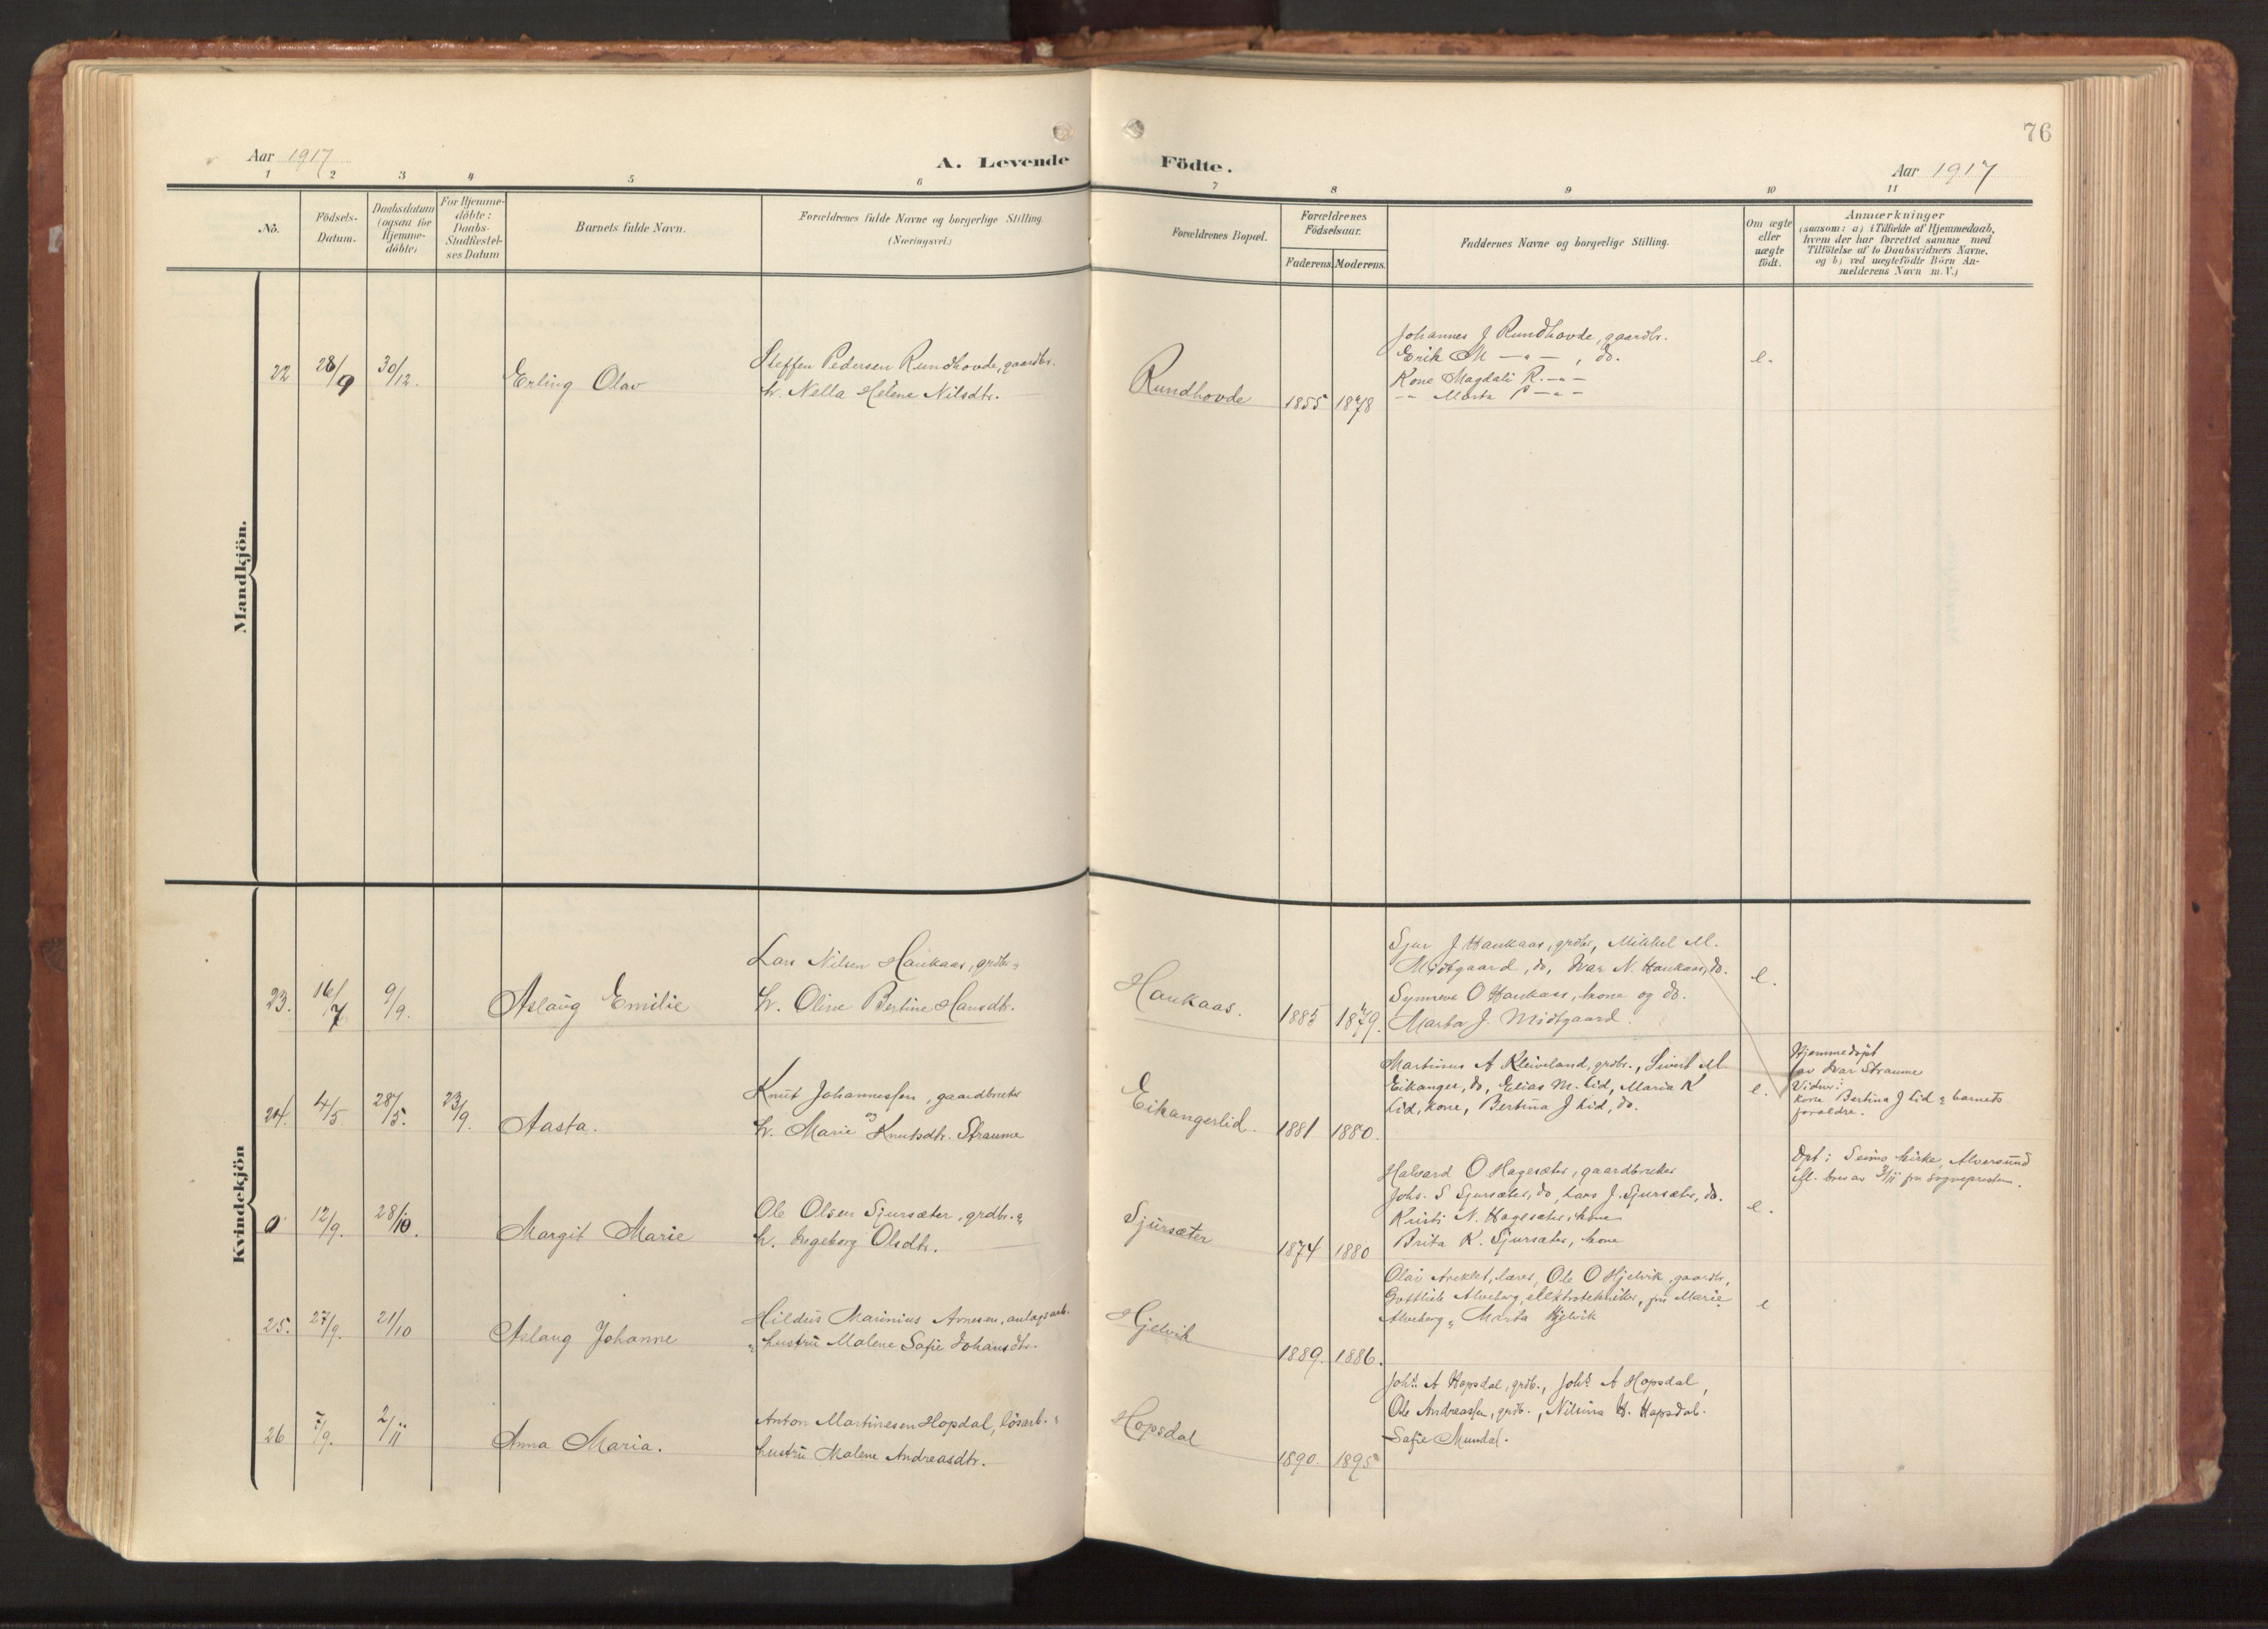 76
Aar 1917
A. Levende Födte.
Aar 1917
1 2 3 4 5 6 7 8 9 10 11
No.
Födsels-
Datum.
Daabsdatum
(ogsaa for
Hjemme-
döbte)
For Hjemme-
döbte:
Daabs-
Stadfæstel-
ses Datum
Barnets fulde Navn.
Forældrenes fulde Navne og borgerlige Stilling.
(Næringsvei.)
Forældrenes Bopæl.
Forældrenes
Födselsaar.
Faderens. Moderens.
Faddernes Navne og borgerlige Stilling.
Om ægte
eller
uægte
födt.
Anmærkninger
(saasom: a) i Tilfælde af Hjemmedaab,
hvem der har forrettet samme med
Tilföielse af to Daabsvidners Navne,
og b) ved uægtefödte Börn An-
melderens Navn m. V.)
Mandkjön.
22 28/9 30/12. Erling Olav
Steffen Pedersen Rundhovde, gaardbr.
h. Nella Helene Nilsdtr.
Rundhovde 1855 1878
Johannes J Rundhovde, gaardbr.
Erik M —"—, do.
Kone Magdali R. —"—
—"— Marta P —"—
e.
Kvindekjön
23. 16/7 9/9. Aslaug Emilie
Lars Nilsen Haukaas, grdbr. "
h. Oline Bertine Hansdtr.
Haukaas. 1885 1879.
Sjur J Haukaas, grdbr, Mikkel M.
Midtgaard, do, Ivar N. Haukaas, do.
Synneve O Haukaas, kone og do.
Marta J. Midtgaard.
e.
24. 4/5 28/5. 23/9. Aasta.
Knut Johannessen, gaardbruker
og
h. Marie Knutsdtr. Straume
Eikangerlid. 1881 1880.
Martinus A Kleiveland, grdbr., Sivert M.
Eikanger, do, Elias M. Lid, Maria K
Lid, kone, Bertina J Lid, do.
e.
Hjemmedöpt
av Ivar Straume
Vidner:
kone Bertina J Lid " barnets
foraldre.
0 12/9. 28/10. Margit Marie
Ole Olsen Sjursæter, grdbr. "
h. Ingeborg Olsdtr.
Sjursæter 1874 1880
Halvard O Hagesæter, gaardbruker
Johs. S Sjursæter, do, Lars J. Sjursæter, do.
Kristi N. Hagesæter, kone
Brita K. Sjursæter, kone
e.
Dpt i Seims kirke, Alversund
ifl. brev av 3/11 fra sognepresten.
25. 27/9. 21/10 Aslaug Johanne
Hildus Marinius Arnesen, anlægsarb.
" hustru Malene Sofie Johansdtr.
Hjelvik 1889. 1886.
Olai Areklet, lærer, Ole O Hjelvik, gaardbr,
Gottlieb Alveberg, elektrotekniker, fru Marie
Alveberg " Marta Hjelvik
e
26 7/9. 2/11 Anna Maria.
Anton Martinesen Hopdal, lösarb. "
hustru Malene Andreasdtr.
Hopsdal 1890. 1895
Johs A Hopsdal, grdb., Johs A Hopsdal,
Ole Andreassen, grdb., Nilsina H. Hopsdal.
Sofie Mundal.